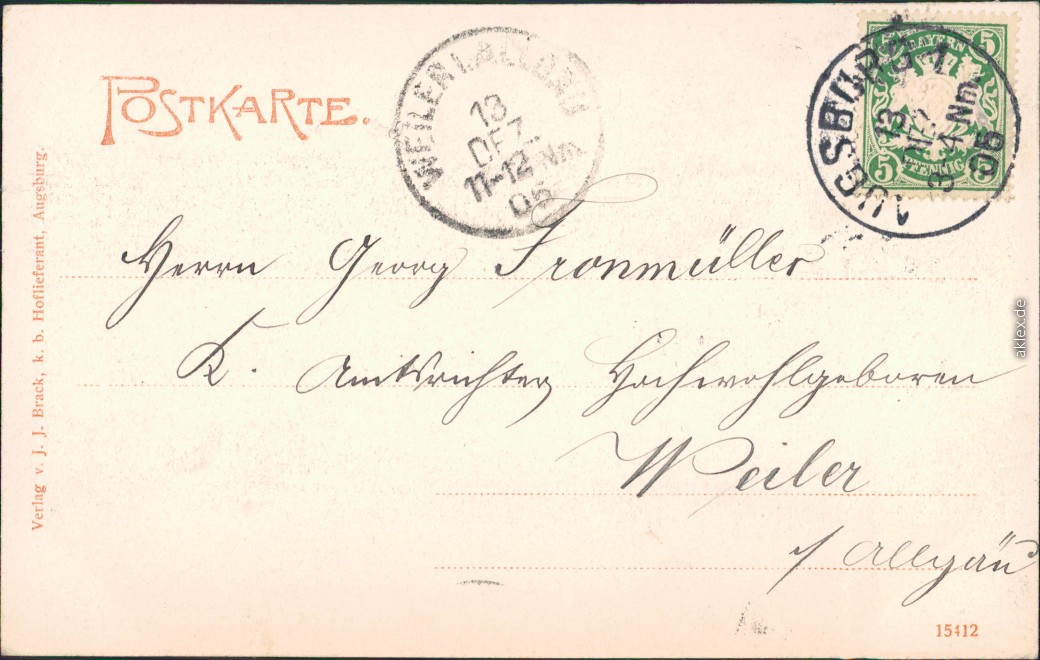 POSTKARTE.
WEILER I. ALLGÄU
13
DEZ.
11-12 Nm
05
AUGSBURG 1
13
DEZ
3-4 Nm
05
BAYERN
5 5
5
PFENNIG
Herrn Georg Fronmüller
K. Amtsrichter Hochwohlgeboren
Weiler
i/ Allgäu
Verlag v. J. J. Brack, k. b. Hoflieferant, Augsburg.
15412
aklex.de